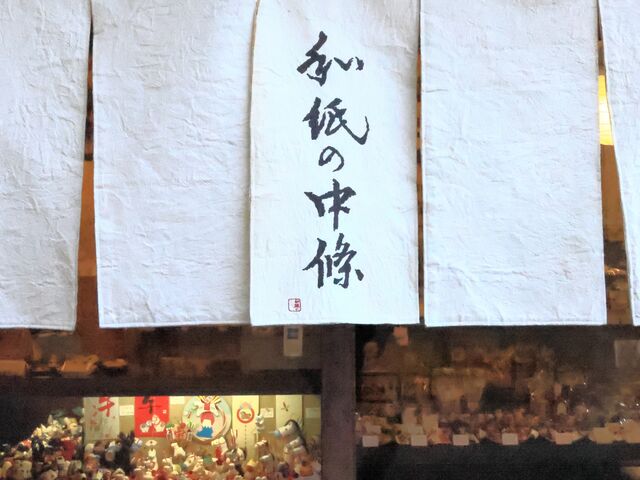 和紙の中條
午